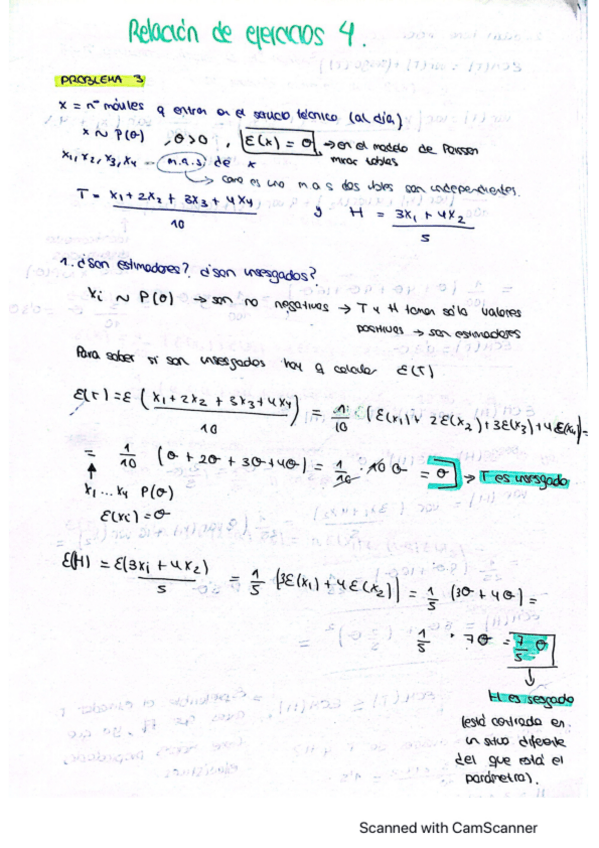 Relación de ejercicios 4.
PROBLEMA 3
x = nº móviles q entran en el servicio técnico (al día)
x ~ P(θ) , θ>0 , E(x) = θ → en el modelo de Poisson
mirar tablas
x₁, x₂, x₃, x₄ m.a.s de x
→ como es una m a s dos vbles son independientes.
T = x₁ + 2x₂ + 3x₃ + 4x₄ / 10 y H = 3x₁ + 4x₂ / 5
1. ¿Son estimadores? ¿Son insesgados?
xi ~ P(θ) → son no negativas → T y H toman sólo valores
positivos → son estimadores
Para saber si son insesgados hay q calcular E(T)
E(T) = E ( x₁ + 2x₂ + 3x₃ + 4x₄ / 10 ) = 1/10 (E(x₁) + 2E(x₂) + 3E(x₃) + 4E(x₄) =
= 1/10 (θ + 2θ + 3θ + 4θ) = 1/10 · 10 θ = θ → T es insesgado
x₁ ... x₄ P(θ)
E(xi) = θ
E(H) = E(3xi + 4x₂) / 5 = 1/5 (3E(x₁) + 4E(x₂)) = 1/5 (3θ + 4θ) =
1/5 · 7θ = 7/5 θ
H es sesgado
(está centrado en
un sitio diferente
del que está el
parámetro).
Scanned with CamScanner